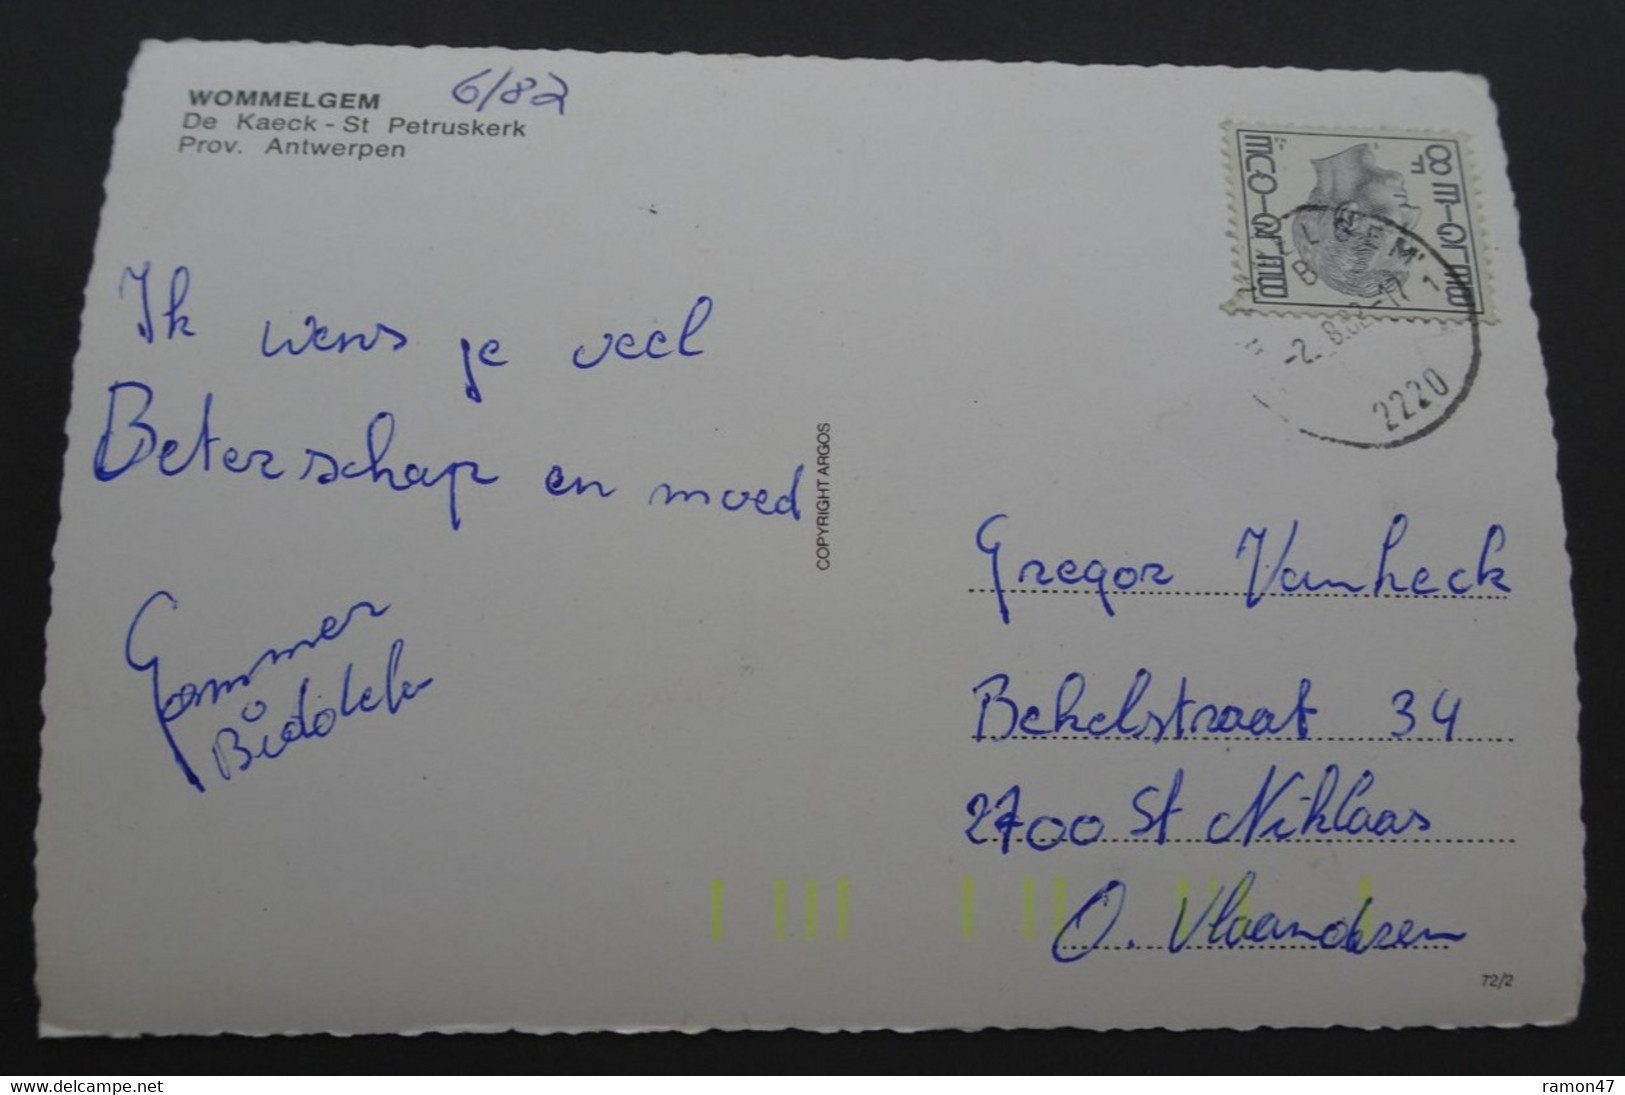 WOMMELGEM
De Kaeck - St Petruskerk
Prov. Antwerpen
6/82
Ik wens je veel
Beterschap en moed
Gommer
COPYRIGHT ARGOS
2220
Gregor Vanheck
Bekelstraat 34
2700 St Niklaas
O. Vlaanderen
72/2
www.delcampe.net
ramon47